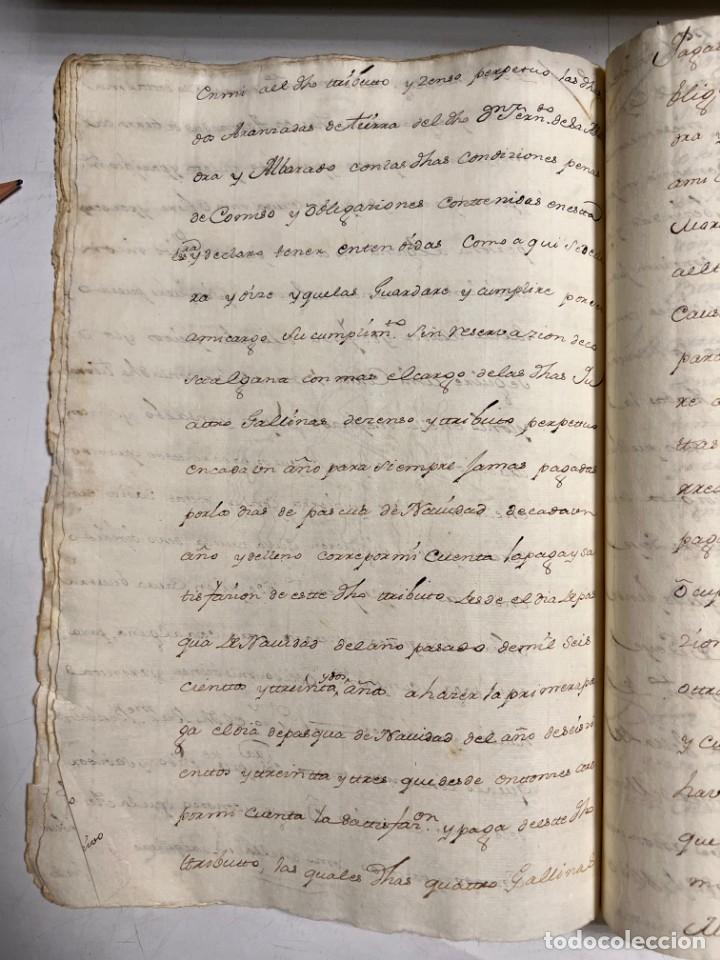 en mi a el dho tributo y zenso perpetuo las dhas
dos Aranzadas de tierra del dho Dn Ferndo de la
ra y Albarado con las dhas Condiziones penas
de Comiso y Obligaziones Conttenidas en esta
y declaro tener entendidas Como aqui se decla
ra y dize y que las Guardare y cumplire
a mi cargo su cumplimto sin reservazion de co
sa alguna con mas el cargo de las dhas qu
attro Gallinas de zenso y ttributo perpetuo
en cada un año para siempre Jamas pagadas
por los dias de pascua de Navidad de cada un
año y de lleno corre por mi cuenta la paga y sa
tisfazion de este dho ttributo desde el dia de pas
qua de Navidad del año pasado de mil seis
cientos y ttreinta y dos año a hazer la primera pa
ga el dia de pasqua de Navidad del año de seis ci
enttos y ttreintta y ttres que desde entonzes corre
por mi cuenta la sattisfazon y paga de este dho
ttributto, las quales dhas quattro Gallinas
Paga
Oblig
dra y
ami
Mara
ael
Caus
para
xe a
stas
exec
paga
Ocup
zion
ottra
y cu
hav
que
m
todocoleccion
todocoleccion.net